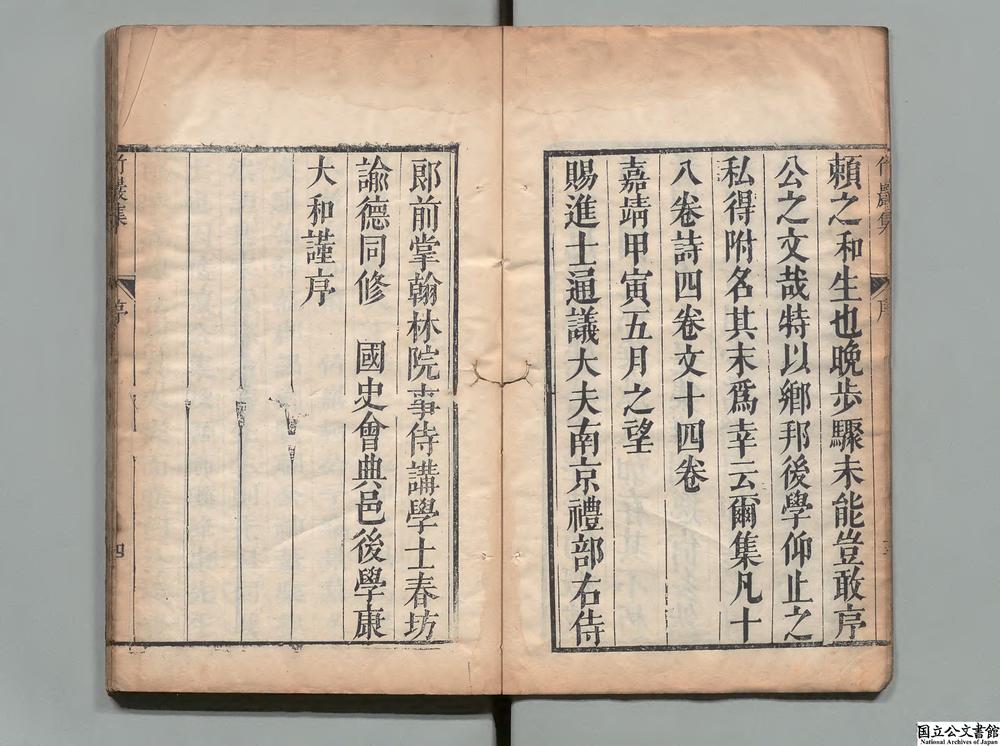 賴之和生也晚步驟未能豈敢序
公之文哉特以鄉邦後學仰止之
私得附名其末爲幸云爾集凡十
八卷詩四卷文十四卷
嘉靖甲寅五月之望
賜進士通議大夫南京禮部右侍
郎前掌翰林院事侍講學士春坊
諭德同修　國史會典邑後學康
大和謹序
竹巖集
序
四
国立公文書館
National Archives of Japan